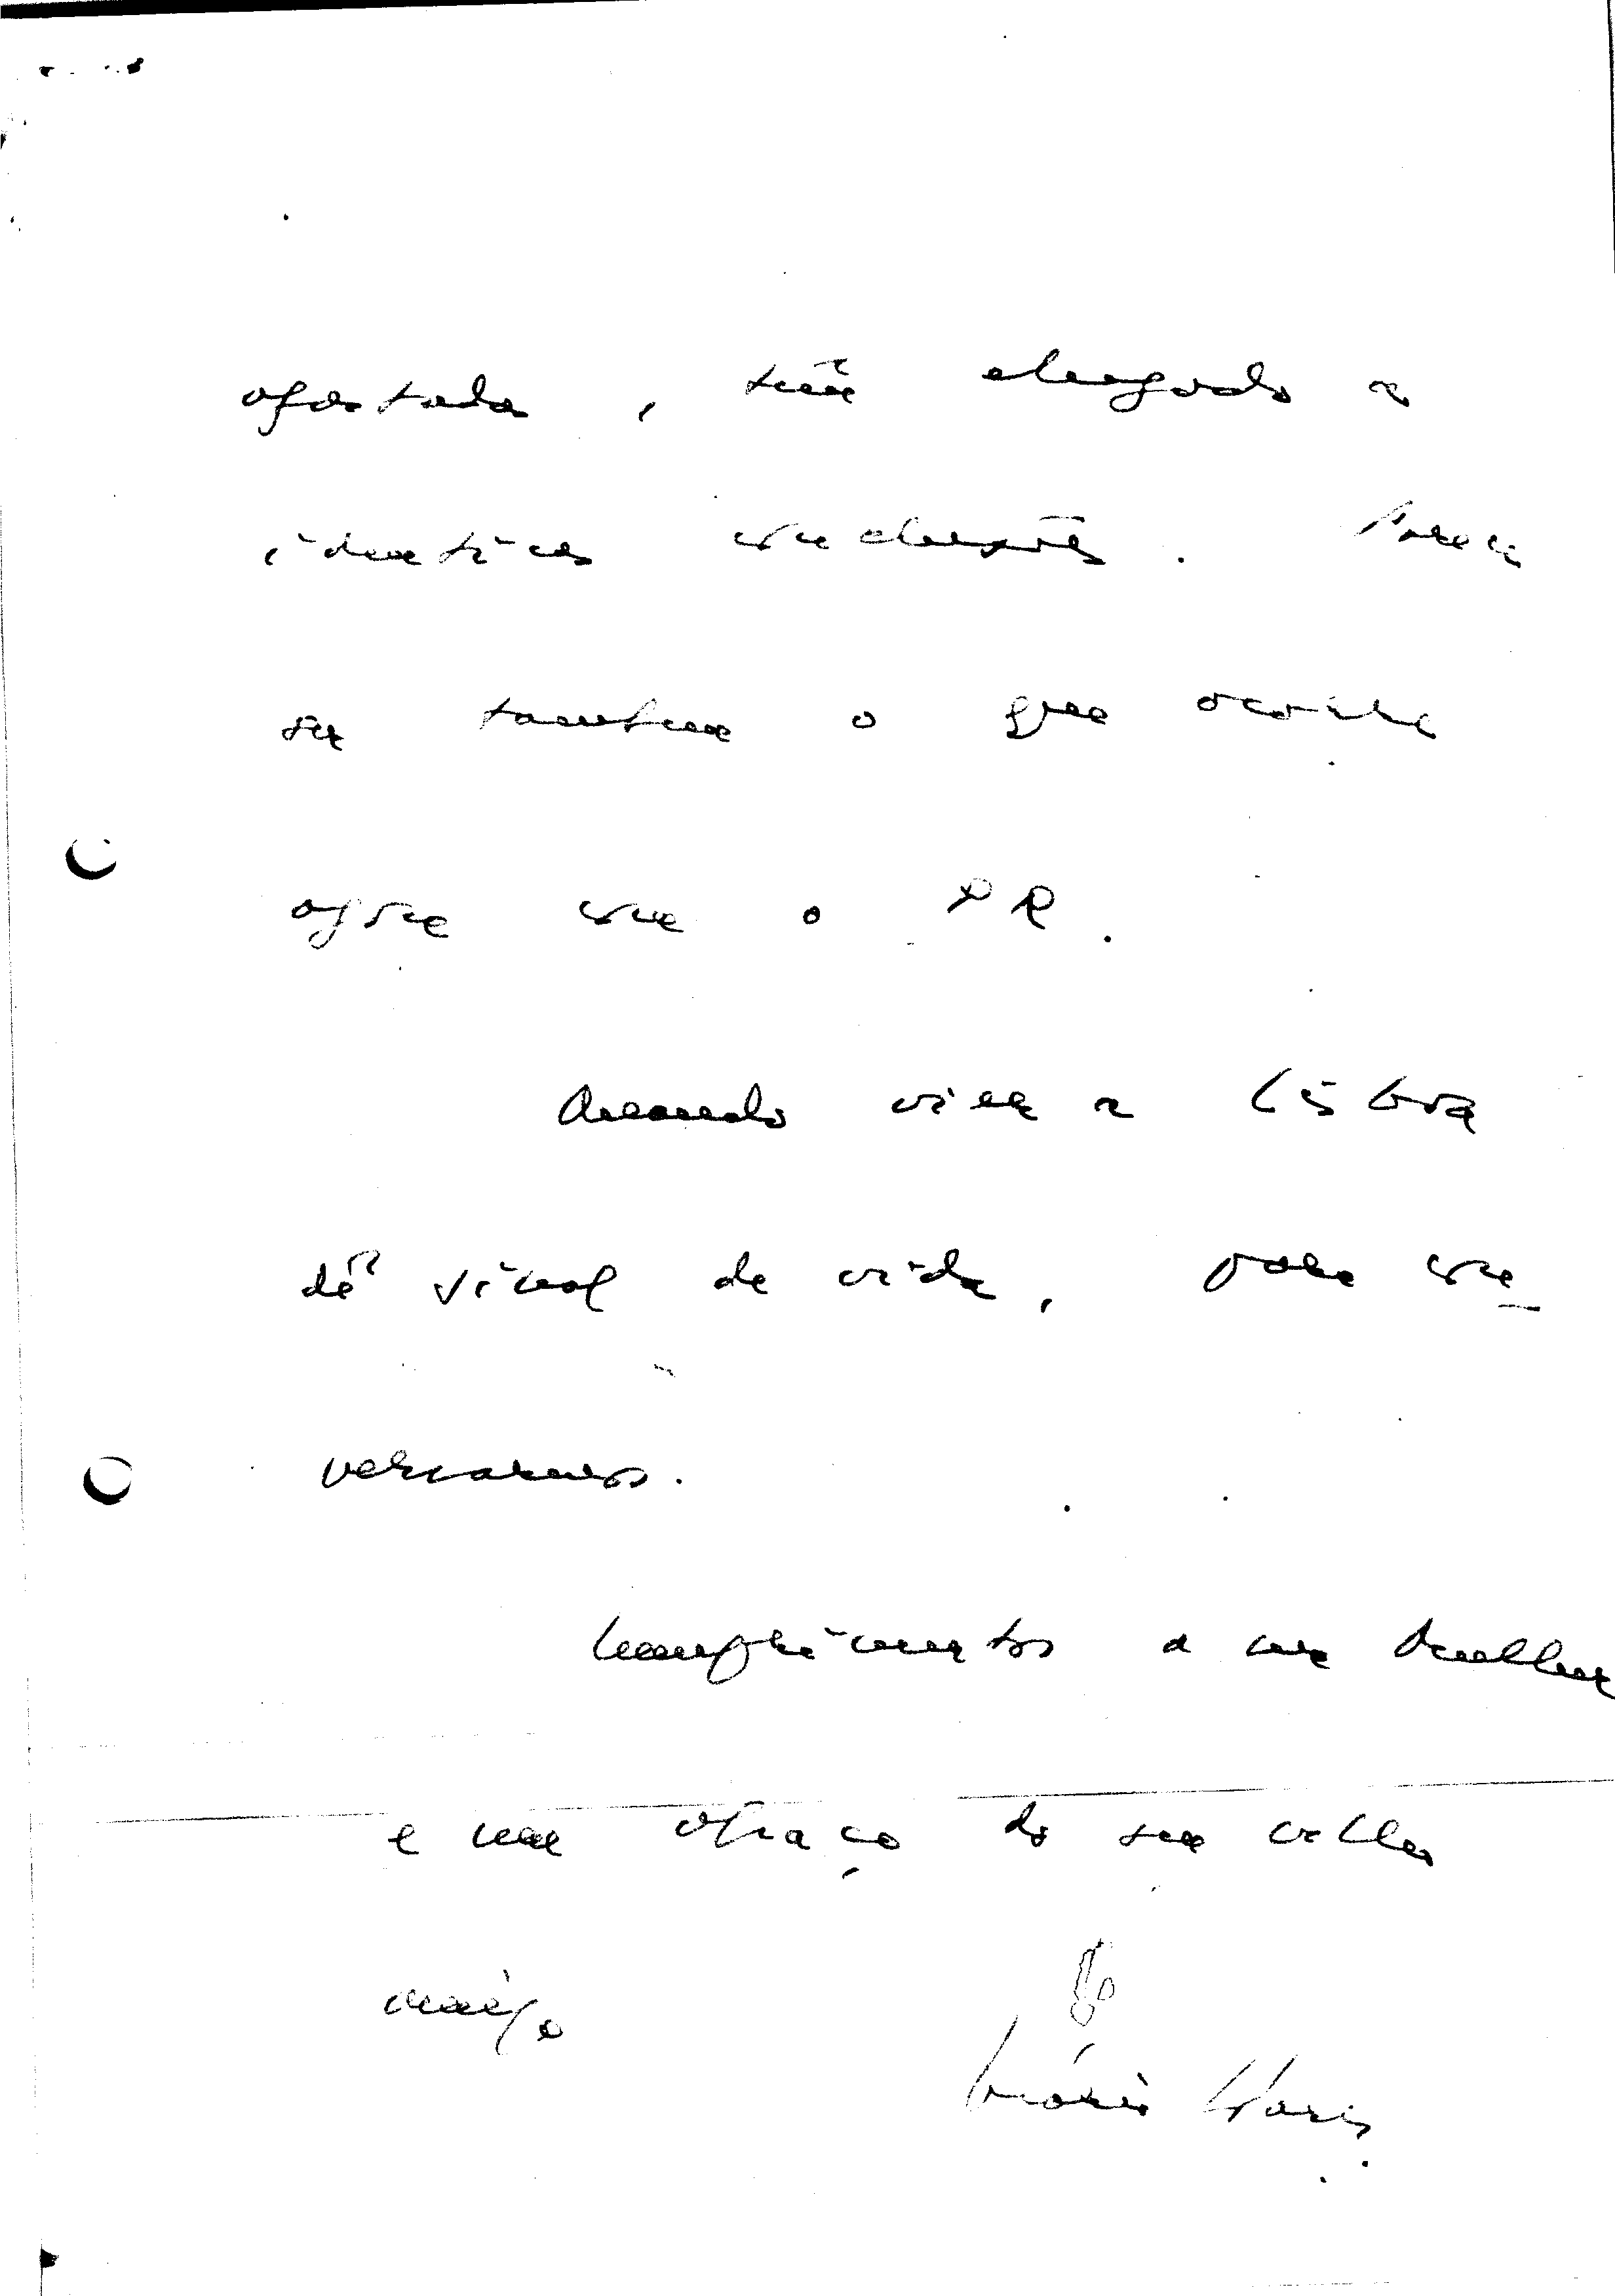 afastada, têm chegado a
idênticas conclusões. Parece
ser também o que ocorre
agora com o PR.
Quando vier a Lisboa
dê sinal de vida, para con-
versarmos.
Cumprimentos a sua Mulher
e um abraço do seu velho
amigo
Mário Soares